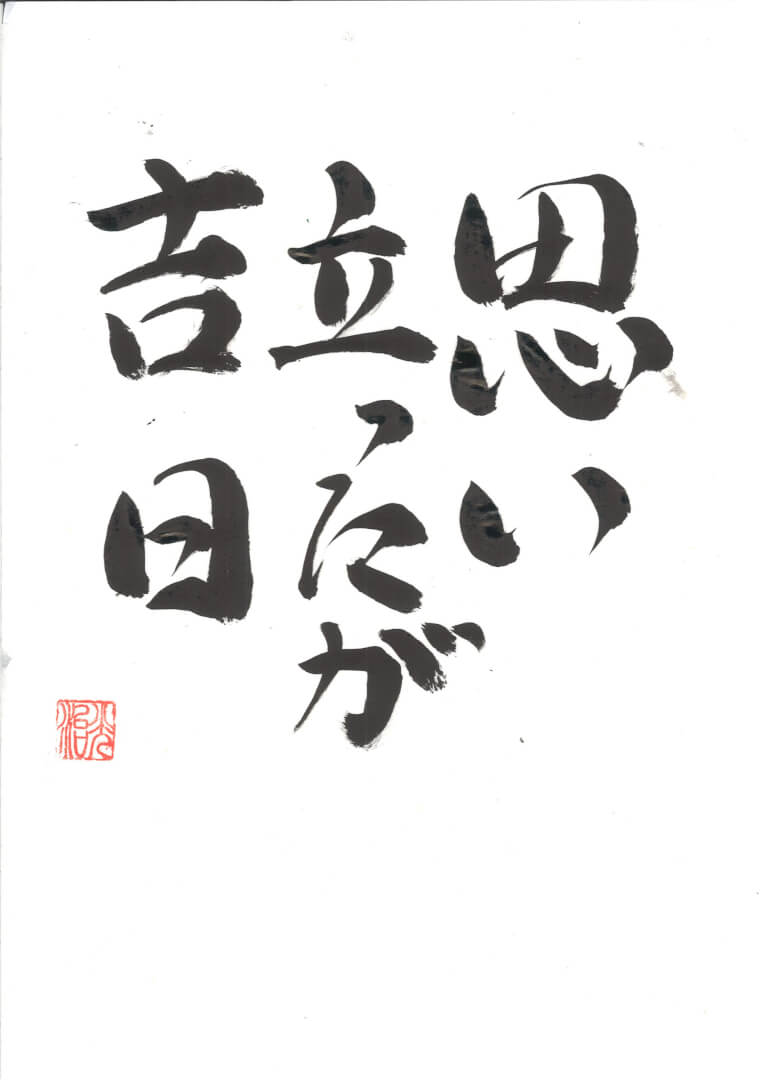 思い
立ったが
吉日